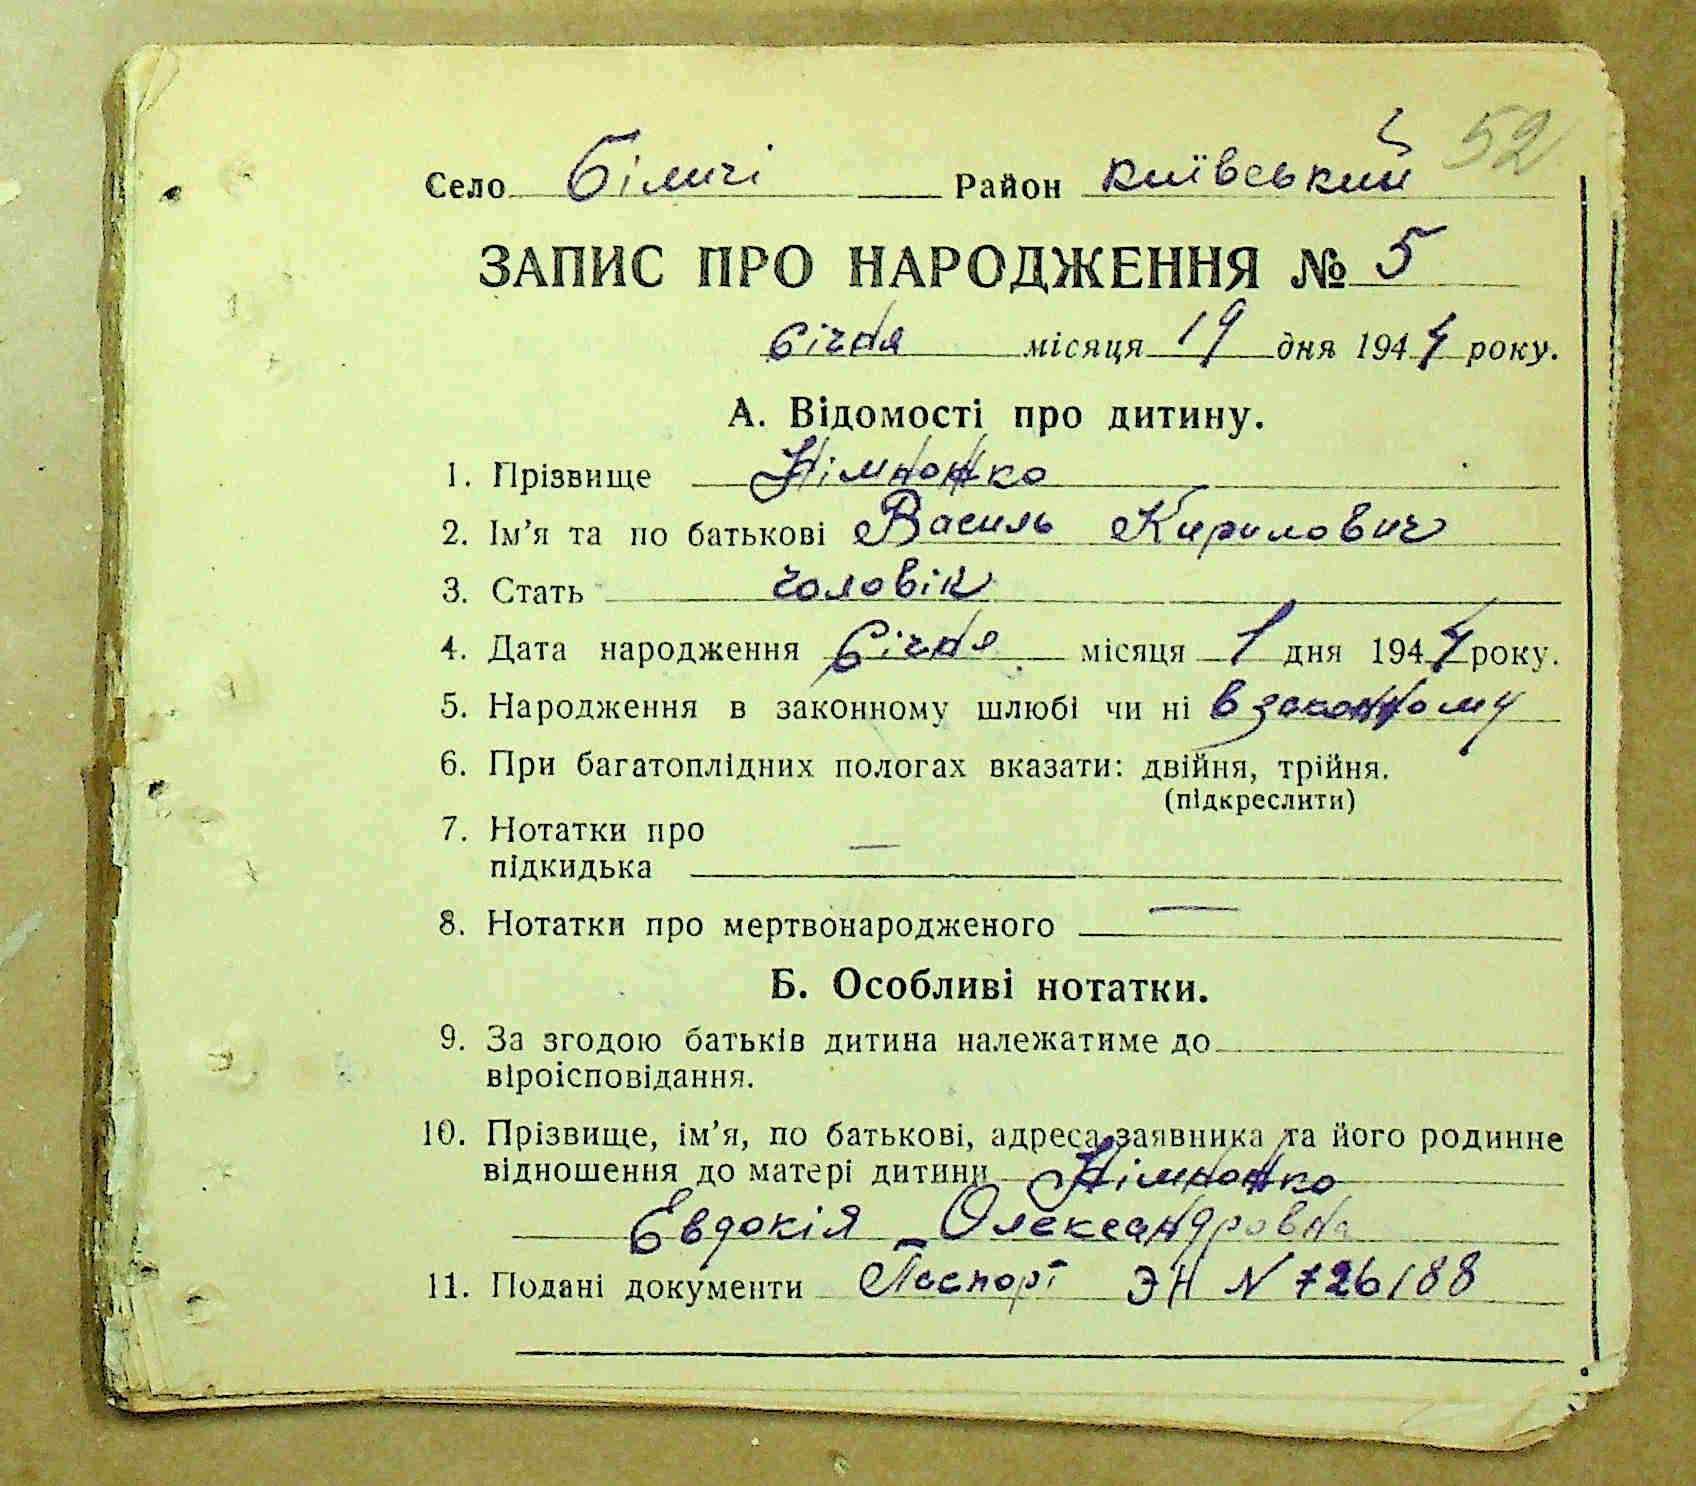 52
Село Біличі Район київський
ЗАПИС ПРО НАРОДЖЕННЯ № 5
Січня місяця 19 дня 1944 року.
А. Відомості про дитину.
1. Прізвище Німножко
2. Ім’я та по батькові Василь Кирилович
3. Стать чоловік
4. Дата народження Січня місяця 1 дня 1944 року.
5. Народження в законному шлюбі чи ні в законному
6. При багатоплідних пологах вказати: двійня, трійня.
(підкреслити)
7. Нотатки про —
підкидька
8. Нотатки про мертвонародженого —
Б. Особливі нотатки.
9. За згодою батьків дитина належатиме до
віроісповідання.
10. Прізвище, ім’я, по батькові, адреса заявника та його родинне
відношення до матері дитини Німножко
Евдокія Олександровна
11. Подані документи Паспорт ЭН N 726188